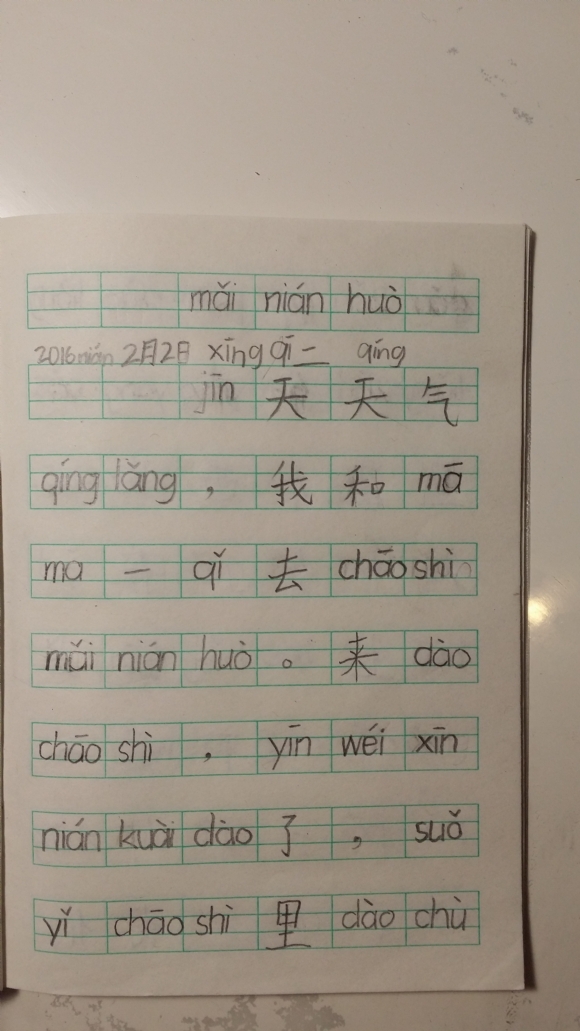 mǎi nián huò
2016nián 2月2日 xīng qī 二 qíng
jīn 天 天 气
qíng lǎng ， 我 和 mā
ma 一 qǐ 去 chāo shì
mǎi nián huò 。 来 dào
chāo shì ， yīn wéi xīn
nián kuài dào 了 ， suǒ
yǐ chāo shì 里 dào chù